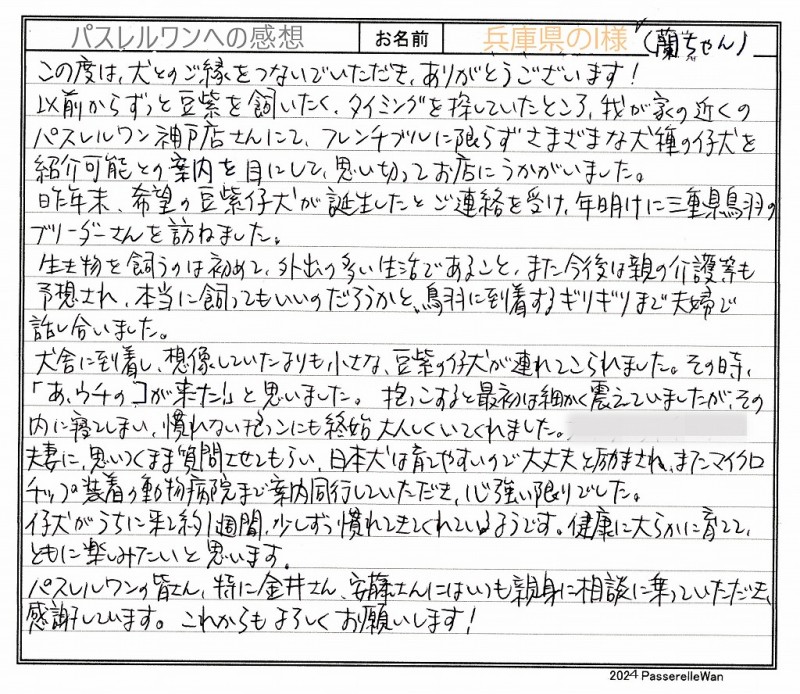 パスレルワンへの感想 お名前 兵庫県のI様 (蘭ちゃん)
この度は、犬とのご縁をつないでいただき、ありがとうございます!
以前からずっと豆柴を飼いたく、タイミングを探していたところ、我が家の近くの
パスレルワン神戸店さんにて、フレンチブルに限らずさまざまな犬種の仔犬を
紹介可能との案内を目にして、思い切ってお店にうかがいました。
昨年末、希望の豆柴仔犬が誕生したとご連絡を受け、年明けに三重県鳥羽の
ブリーダーさんを訪ねました。
生き物を飼うのは初めて、外出の多い生活であること、また今後は親の介護等も
予想され、本当に飼ってもいいのだろうかと、鳥羽に到着するギリギリまで夫婦で
話し合いました。
犬舎に到着し、想像していたよりも小さな、豆柴の仔犬が連れてこられました。その時、
「あ、ウチのコが来た!」と思いました。抱っこすると最初は細かく震えていましたが、その
内に寝てしまい、慣れない抱っこにも終始大人しくいてくれました。
夫妻に、思いつくまま質問させてもらい、日本犬は育てやすいので大丈夫と励まされ、またマイクロ
チップ装着の動物病院まで案内同行していただき、心強い限りでした。
仔犬がうちに来て約1週間、少しずつ慣れてきてくれているようです。健康に大らかに育てて、
ともに楽しみたいと思います。
パスレルワンの皆さん、特に金井さん、安藤さんにはいつも親身に相談に乗っていただき、
感謝しています。これからもよろしくお願いします!
2024 PasserelleWan